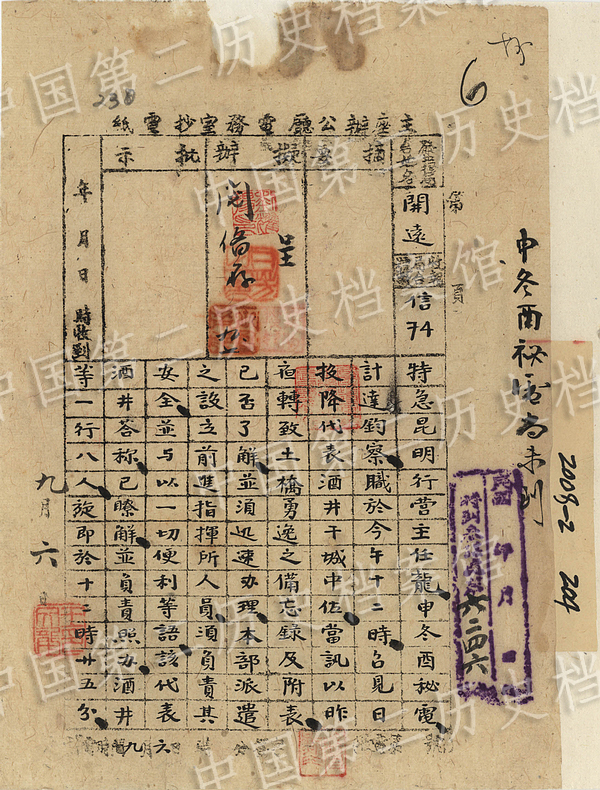 6
238
主座辦公廳電務室抄電紙
第 頁
開遠
信74
摘要
擬辦
批示
呈
閱俻存
年 月 日 時收到
特急昆明行營主任龍申冬酉秘電
計達鈞察職於今午十二時召見日
投降代表酒井干城中佐當訊以昨
宿轉致土橋勇逸之備忘錄及附表
已否了解並須迅速办理本部派遣
之設立前進指揮所人員須負責其
安全並与以一切便利等語該代表
酒井荅称已瞭解並負責照办酒井
等一行八人旋即於十二時廿五分
九月六日
申冬酉祕電尚未到
2009-2 204
六二四六
中国第二历史档案馆